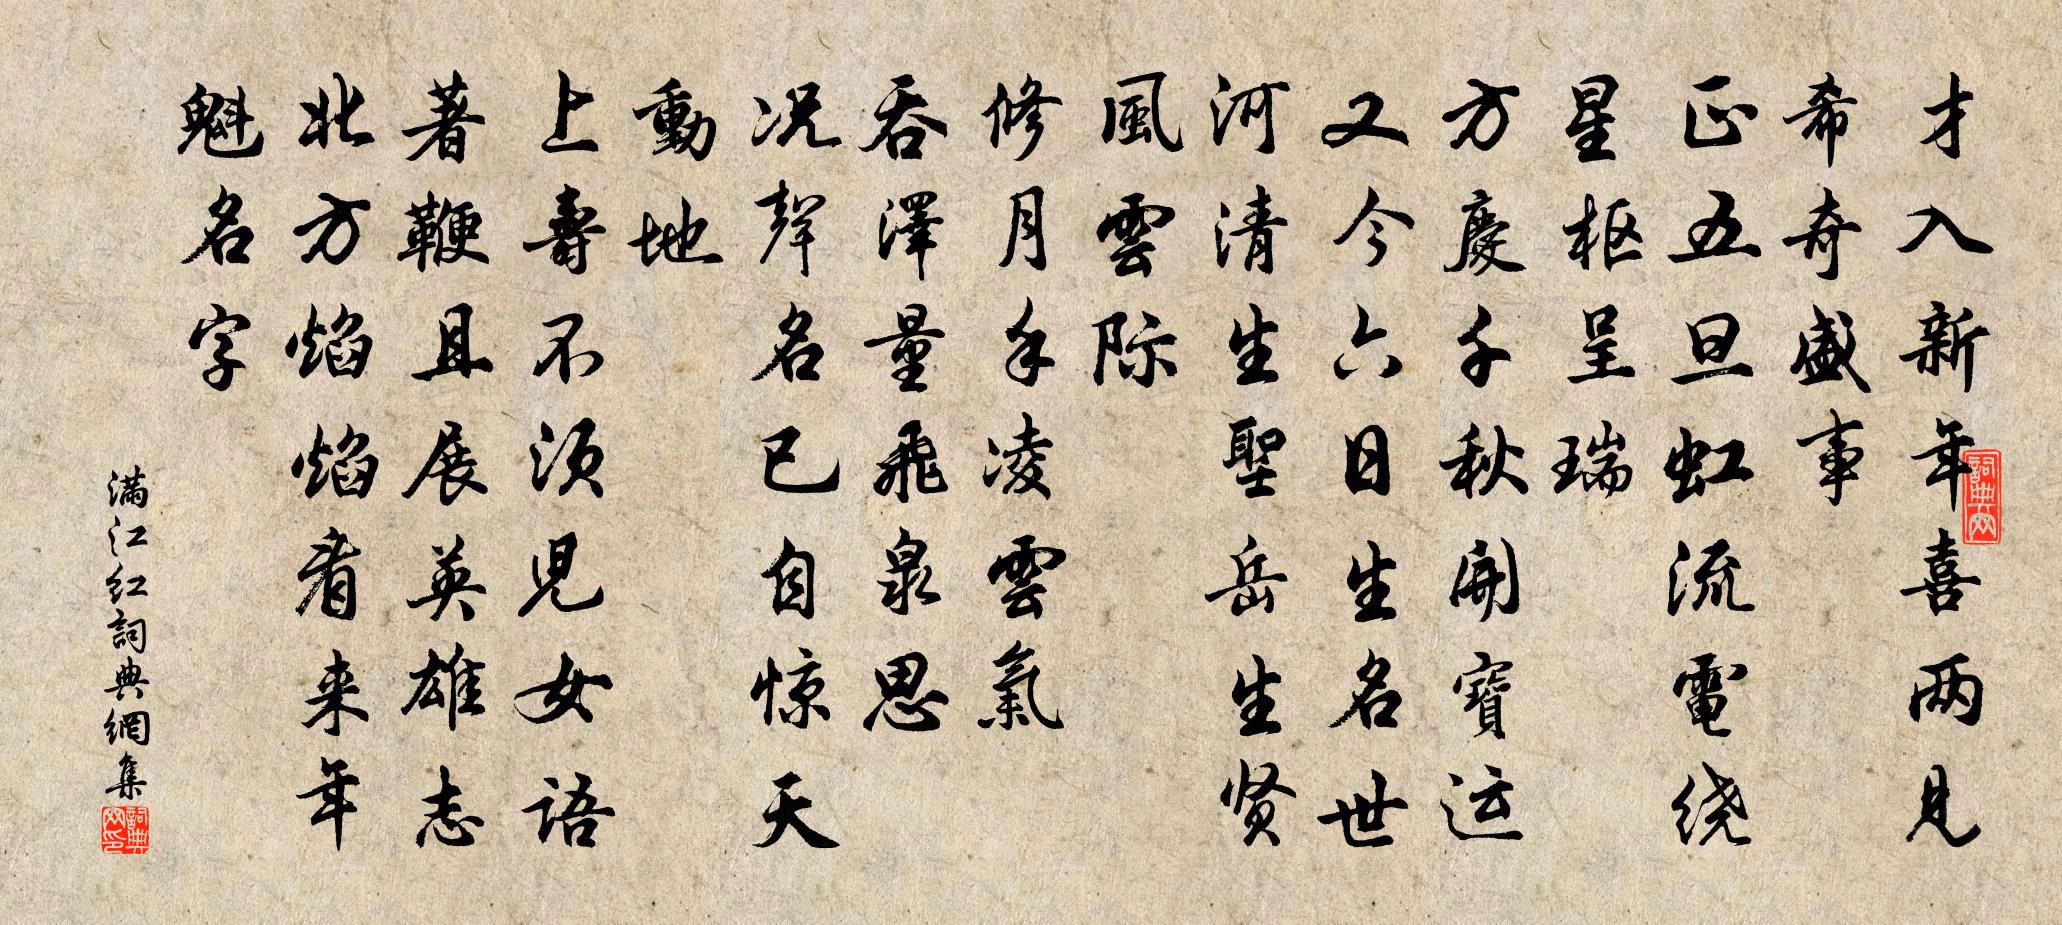 才入新年喜两見
希奇盛事
正五旦虹流電绕
星枢呈瑞
方慶千秋開寶运
又今六日生名世
河清生聖岳生贤
風雲际
修月手凌雲氣
吞澤量飛泉思
况聲名已自惊天
動地
上壽不须児女語
著鞭且展英雄志
北方焰焰看来年
魁名字
满江红詞典網集
詞典网
詞典网印